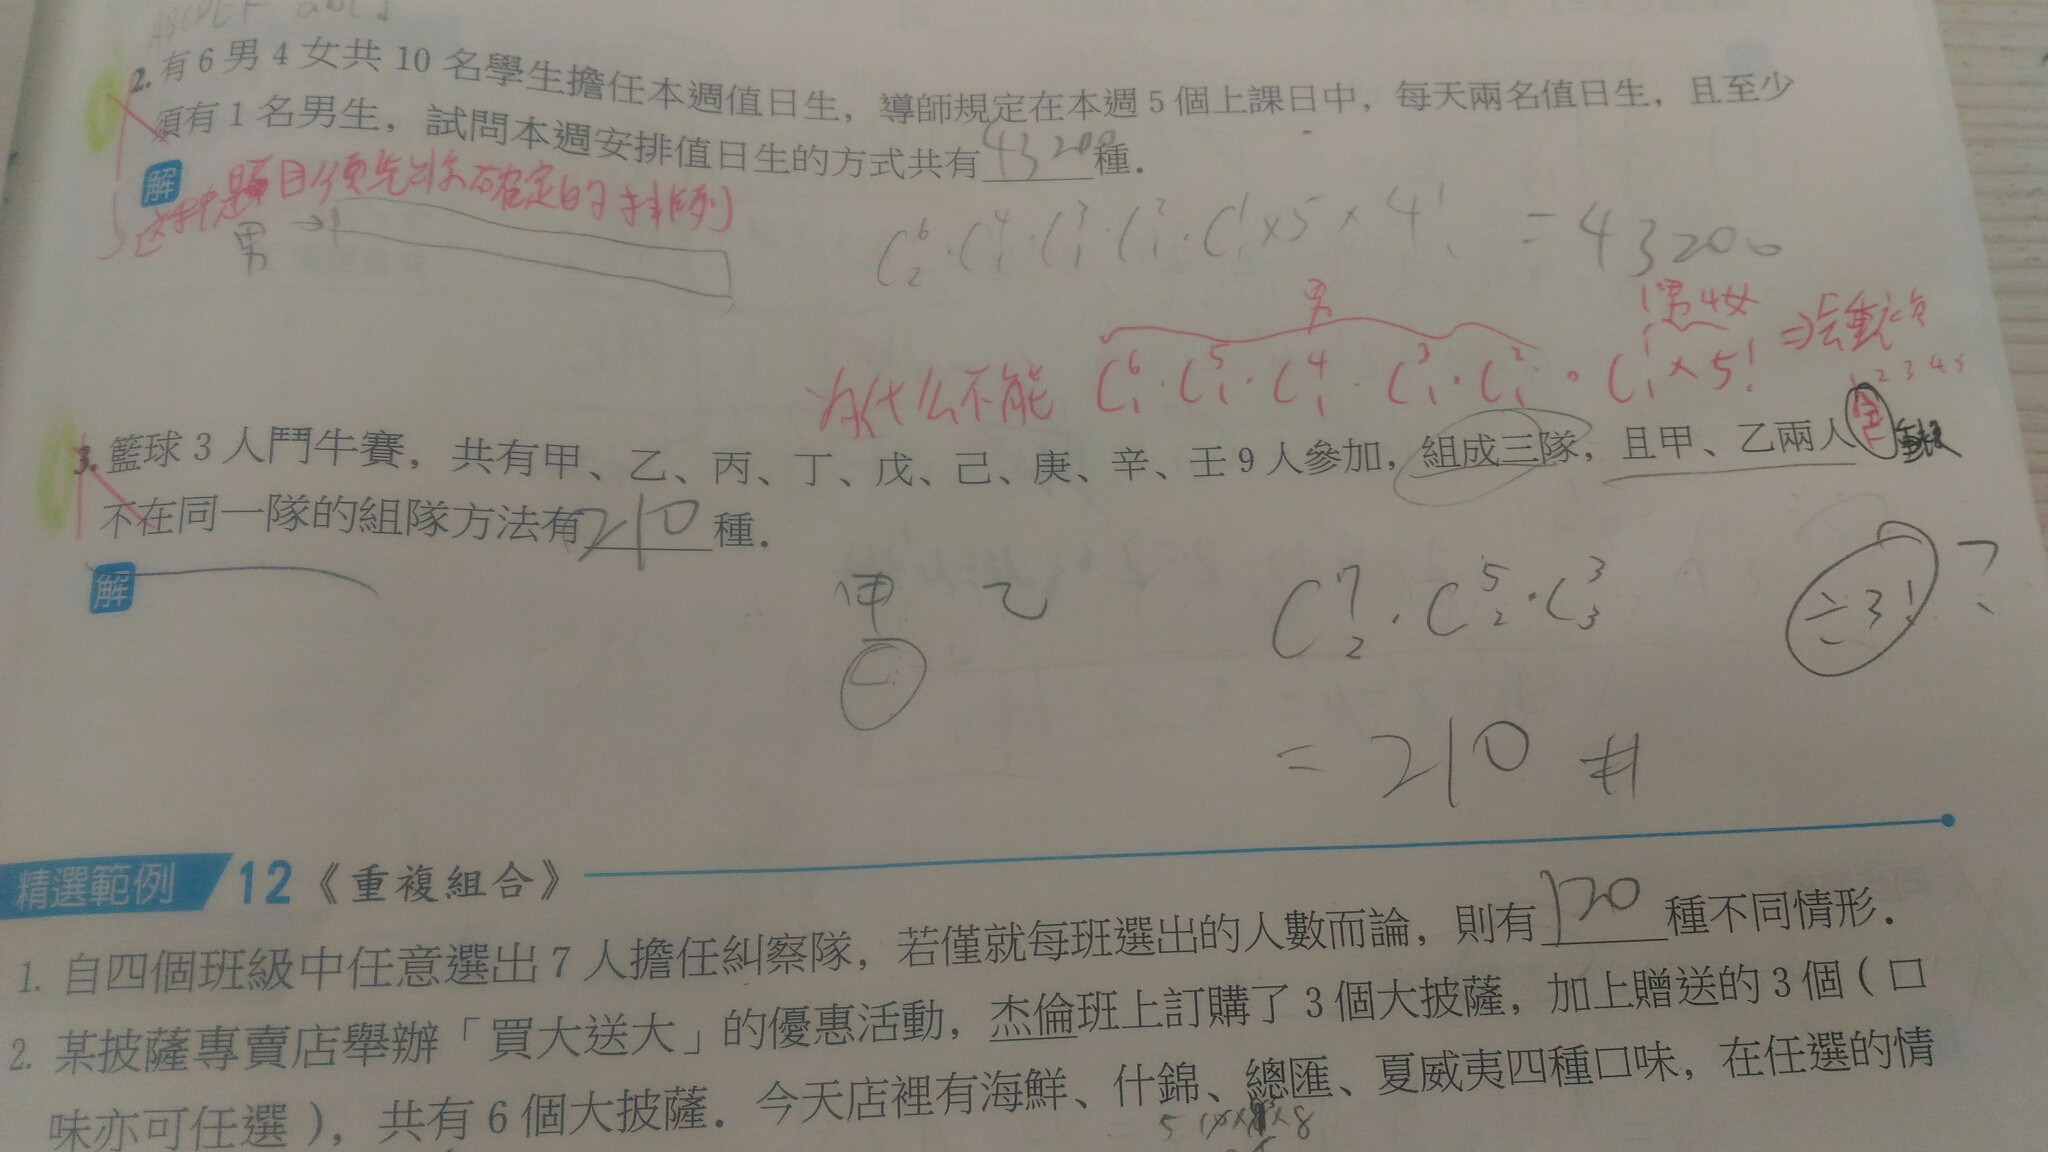 ABCDEF abcd
2. 有6男4女共10名學生擔任本週值日生，導師規定在本週5個上課日中，每天兩名值日生，且至少
須有1名男生，試問本週安排值日生的方式共有43200種．
解
这种題目須先出不確定的才排列
男→
C⁶₂·C⁴₁·C³₁·C²₁·C¹₁×5×4! = 43200
男
1男4女
为什么不能 C⁶₁·C⁵₁·C⁴₁·C³₁·C²₁·C¹₁×5! ⇒
1 2 3 4 5
3. 籃球3人鬥牛賽，共有甲、乙、丙、丁、戊、己、庚、辛、壬9人參加，組成三隊，且甲、乙兩人
不在同一隊的組隊方法有210種．
解
甲 乙
C⁷₂·C⁵₂·C³₃ ÷3! ?
=210 #
精選範例 12《重複組合》
1. 自四個班級中任意選出7人擔任糾察隊，若僅就每班選出的人數而論，則有120種不同情形．
2. 某披薩專賣店舉辦「買大送大」的優惠活動，杰倫班上訂購了3個大披薩，加上贈送的3個（口
味亦可任選），共有6個大披薩．今天店裡有海鮮、什錦、總匯、夏威夷四種口味，在任選的情